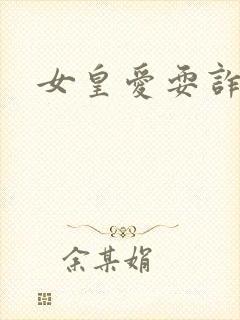 女皇愛耍詐
余某娟